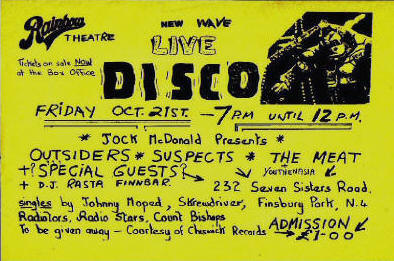 Rainbow THEATRE
NEW WAVE
LIVE
Tickets on sale Now
at the Box Office
DISCO
FRIDAY OCT. 21ST. - 7PM UNTIL 12 P.M.
* JOCK McDONALD PRESENTS *
OUTSIDERS * SUSPECTS * THE MEAT
+?SPECIAL GUESTS?
YOUTHENASIA
+ D.J. RASTA FINNBAR.
232 Seven Sisters Road,
singles by Johnny Moped, Skrewdriver, Finsbury Park, N.4
Radiators, Radio Stars, Count Bishops
To be given away - Courtesy of Chiswick Records
ADMISSION
£1-00